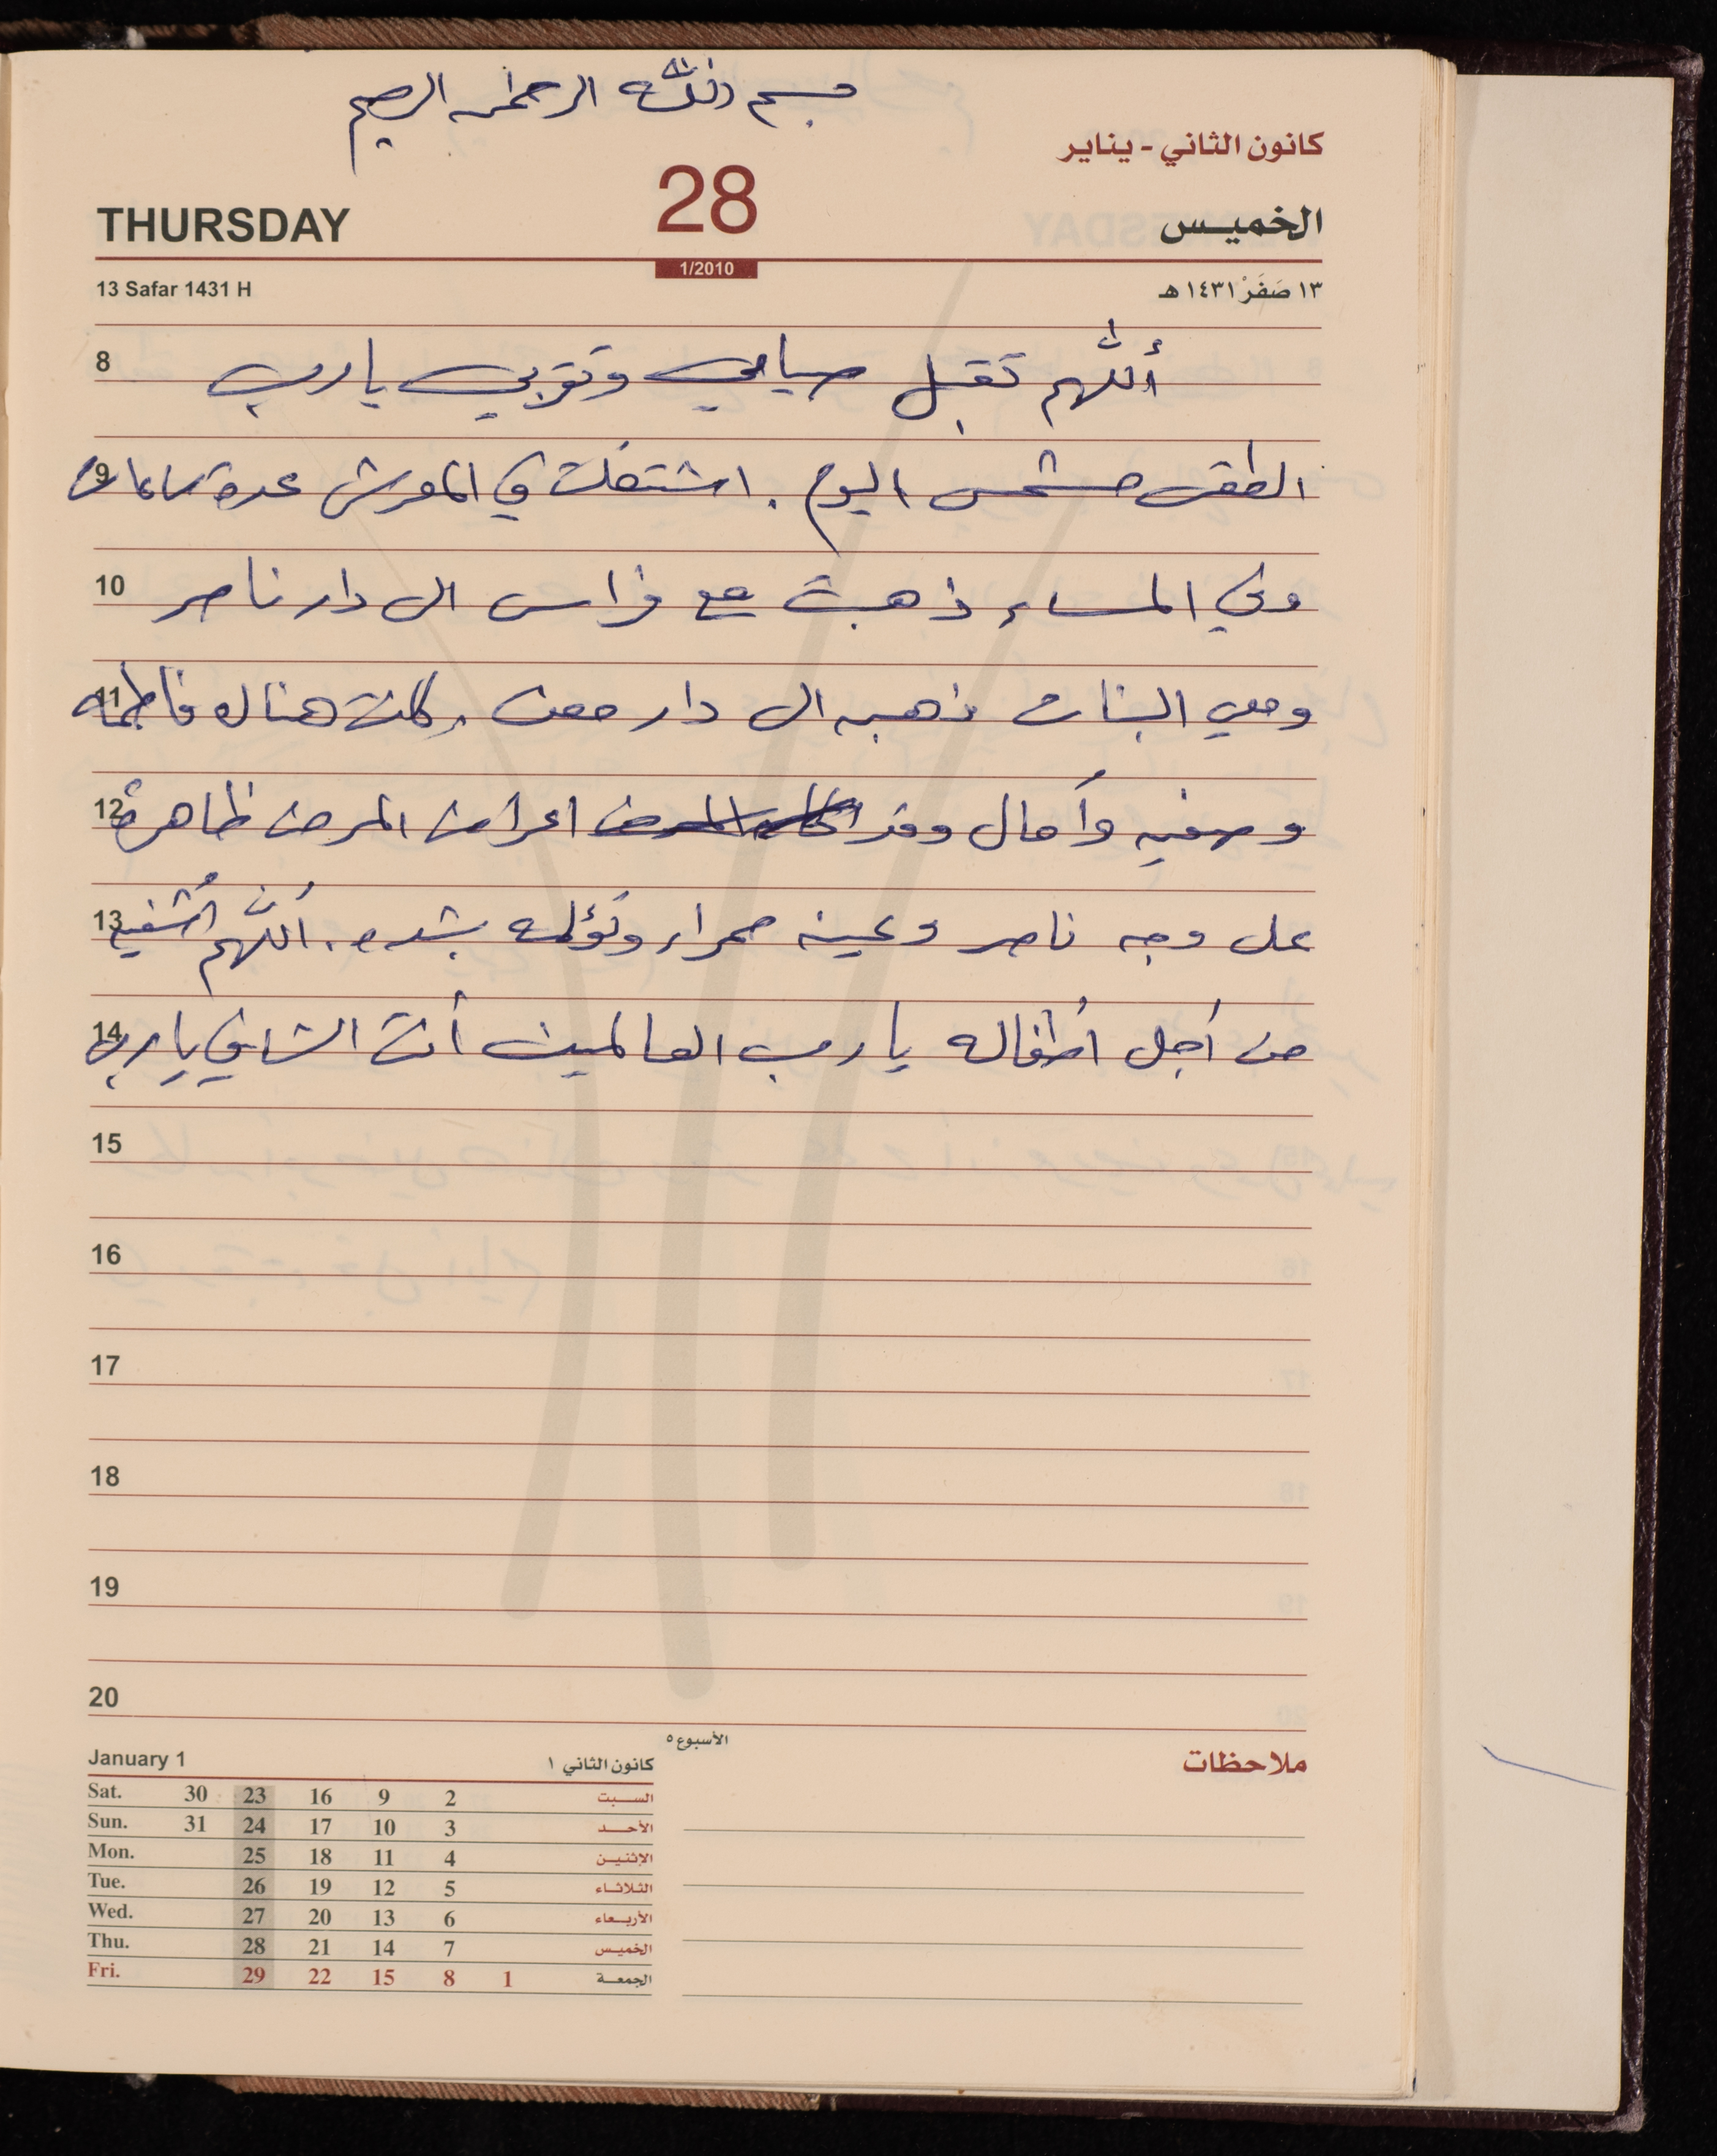 بسم الله الرحمن الرحيم
كانون الثاني - يناير
THURSDAY 28 الخميس
1/2010
13 Safar 1431 H ١٣ صَفَرْ ١٤٣١ هـ
8 أللهم تقبل صيامي وتوبتي يا رب
9 الطقس مشمس اليوم . اشتغلت في المفرش عدة ساعات
10 وفي المساء ذهبت مع فراس الى دار ناصر
11 ومعي البنات ذهبه الى دار معن . كانت هناك فاطمه
12 وصفيه وأمال وقد اعراض المرض ظاهرة
13 على وجه ناصر وعينه حمراء وتؤلمه بشده . اللهم أشفيه
14 من أجل أطفاله يا رب العالمين أنت الشافي يا رب
15
16
17
18
19
20
الأسبوع ٥
ملاحظات
January 1 كانون الثاني ١
Sat. 30 23 16 9 2 السبت
Sun. 31 24 17 10 3 الأحد
Mon. 25 18 11 4 الإثنين
Tue. 26 19 12 5 الثلاثاء
Wed. 27 20 13 6 الأربعاء
Thu. 28 21 14 7 الخميس
Fri. 29 22 15 8 1 الجمعة